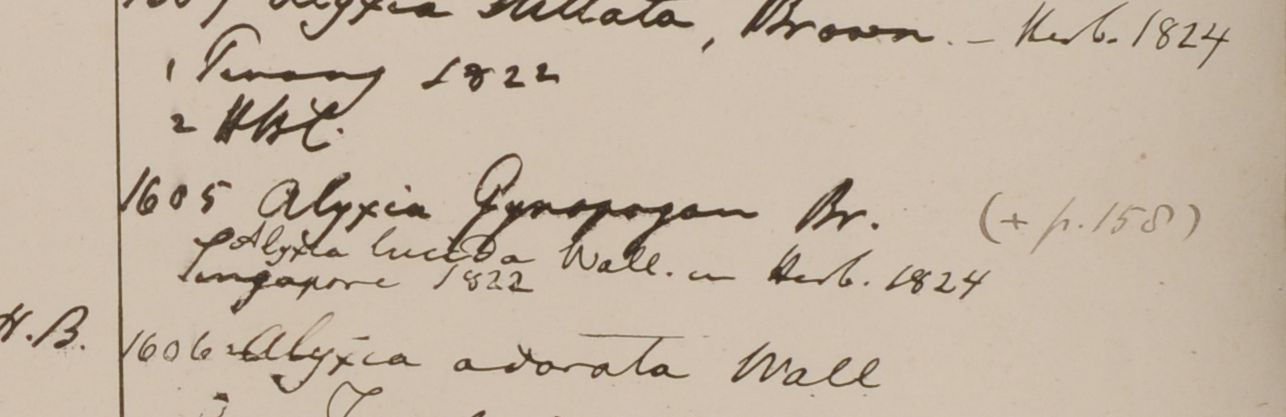 Alyxia stellata, Brown. – Herb. 1824
1 Penang 1822
2 HBC.
1605 Alyxia Gynopogon Br. (+ p. 158)
Alyxia lucida Wall. in Herb. 1824
Singapore 1822
H.B. 1606 Alyxia odorata Wall